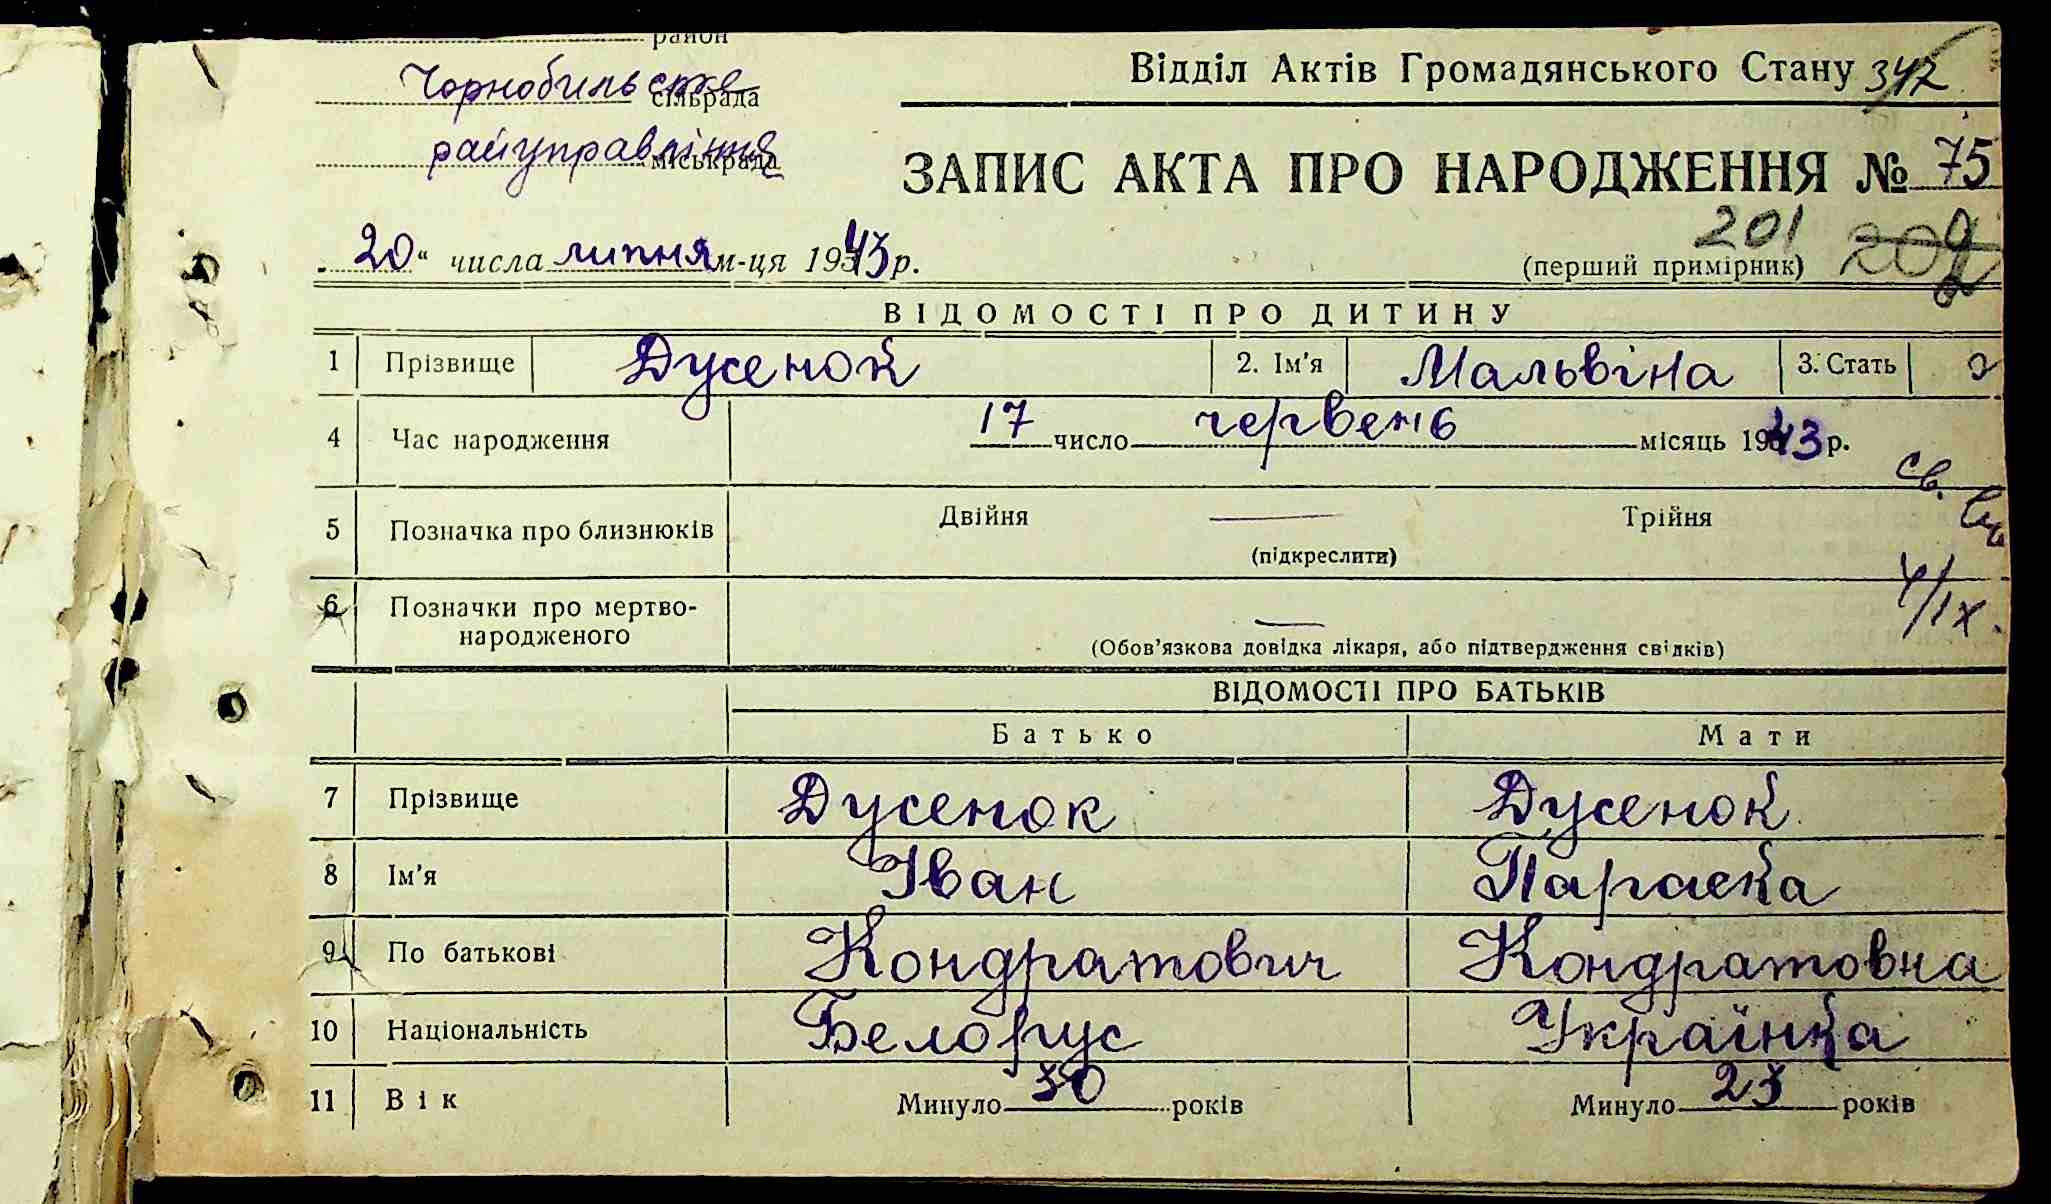 район
Чорнобильське сільрада
райуправління міськрада
Відділ Актів Громадянського Стану 342
ЗАПИС АКТА ПРО НАРОДЖЕННЯ № 75
201
20 “ числа липня м-ця 1943 р.
(перший примірник) 202
ВІДОМОСТІ ПРО ДИТИНУ
1 Прізвище Дусенок 2. Ім'я Мальвіна 3. Стать
4 Час народження 17 число червень місяць 1943 р.
св.
5 Позначка про близнюків Двійня — Трійня
(підкреслити)
4/IX.
6 Позначки про мертво-
народженого —
(Обов'язкова довідка лікаря, або підтвердження свідків)
ВІДОМОСТІ ПРО БАТЬКІВ
Батько Мати
7 Прізвище Дусенок Дусенок
8 Ім'я Іван Параска
9 По батькові Кондратович Кондратовна
10 Національність Белорус Українка
11 Вік Минуло 30 років Минуло 23 років